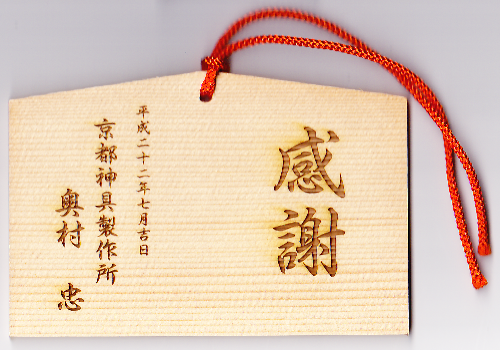 感謝
平成二十二年七月吉日
京都神具製作所
奥村 忠